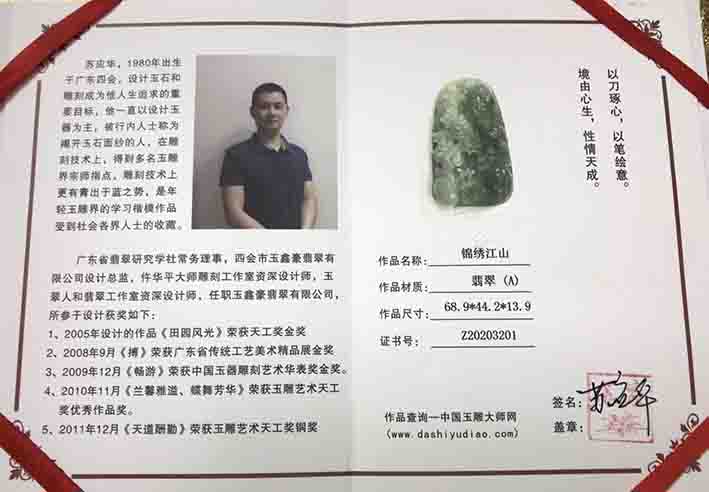 苏应华,1980年出生
于广东四会,设计玉石和
雕刻成为他人生追求的重
要目标,他一直以设计玉
器为主,被行内人士称为
揭开玉石面纱的人,在雕
刻技术上,得到多名玉雕
界宗师指点,雕刻技术上
更有青出于蓝之势,是年
轻玉雕界的学习楷模作品
受到社会各界人士的收藏。
广东省翡翠研究学社常务理事,四会市玉鑫豪翡翠有
限公司设计总监,仵华平大师雕刻工作室资深设计师,玉
翠人和翡翠工作室资深设计师,任职玉鑫豪翡翠有限公司,
所参于设计获奖如下:
1、2005年设计的作品《田园风光》荣获天工奖金奖
2、2008年9月《搏》荣获广东省传统工艺美术精品展金奖
3、2009年12月《畅游》荣获中国玉器雕刻艺术华表奖金奖。
4、2010年11月《兰馨雅溢、蝶舞芳华》荣获玉雕艺术天工
奖优秀作品奖。
5、2011年12月《天道酬勤》荣获玉雕艺术天工奖铜奖
以刀琢心,以笔绘意。
境由心生,性情天成。
作品名称: 锦绣江山
作品材质: 翡翠 (A)
作品尺寸: 68.9*44.2*13.9
证书号: Z20203201
签名: 苏应华
盖章:
作品查询—中国玉雕大师网
(www.dashiyudiao.com)